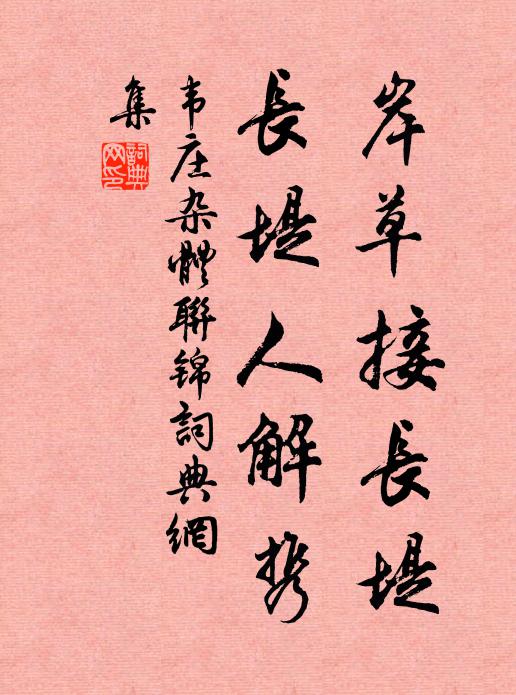 岸草接長堤
長堤人解携
韦庄杂體聯錦詞典網
集
詞典網印